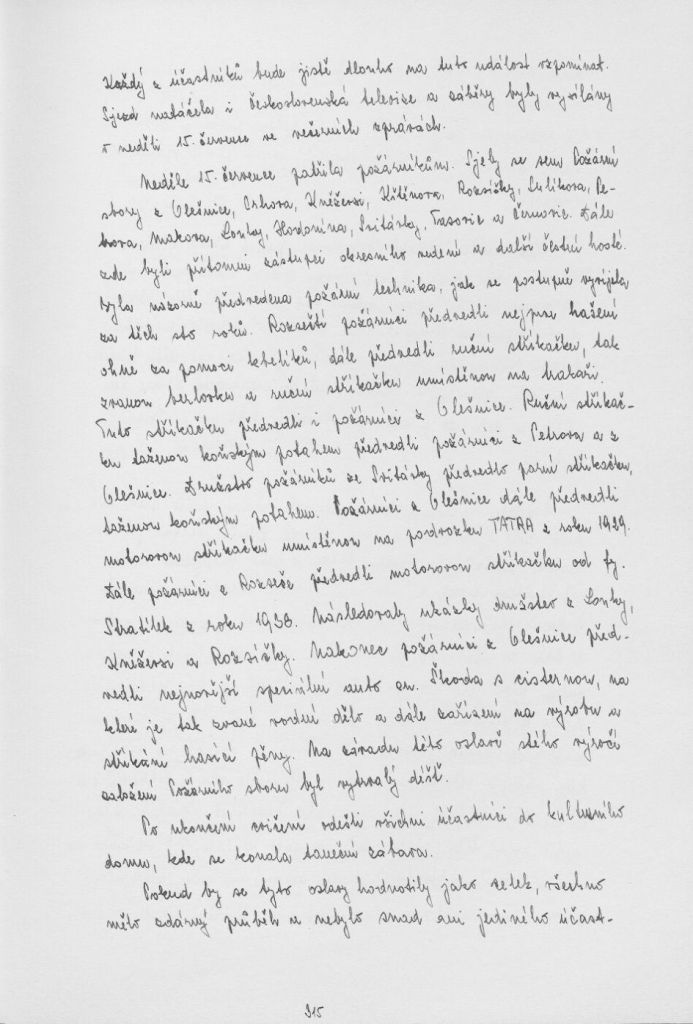 Každý z účastníků bude jistě dlouho na tuto událost vzpomínat.
Sjezd natáčela i československá televise a záběry byly vysílány
v neděli 15. července ve večerních zprávách.
Neděle 15. července patřila požárníkům. Sjely se sem Požární
sbory z Olešnice, Crhova, Kněževsi, Křtěnova, Rozsíčky, Sulíkova, Pe-
trova, Makova, Louky, Hodonína, Svitávky, Tasovic a Černovic. Dále
zde byli přítomni zástupci okresního vedení a další čestní hosté.
Byla názorně předvedena požární technika, jak se postupně vyvíjela
za těch sto roků. Rozsečtí požárníci předvedli nejprve hašení
ohně za pomoci kbelíků, dále předvedli ruční stříkačku, tak
zvanou berlovku a ruční stříkačku umístěnou na trakaři.
Tuto stříkačku předvedli i požárníci z Olešnice. Ruční stříkač-
ku taženou koňským potahem předvedli požárníci z Petrova a z
Olešnice. Družstvo požárníků ze Svitávky předvedlo parní stříkačku,
taženou koňským potahem. Požárníci z Olešnice dále předvedli
motorovou stříkačku umístěnou na podvozku TATRA z roku 1929.
Dále požárníci z Rozseče předvedli motorovou stříkačku od fy.
Stratílek z roku 1938. Následovaly ukázky družstev z Louky,
Kněževsi a Rozsíčky. Nakonec požárníci z Olešnice před-
vedli nejnovější speciální auto zn. Škoda s cisternou, na
které je tak zvané vodní dělo a dále zařízení na výrobu a
stříkání hasící pěny. Na závadu této oslavě stého výročí
založení Požárního sboru byl vytrvalý déšť.
Po ukončení cvičení odešli všichni účastníci do kulturního
domu, kde se konala taneční zábava.
Pokud by se tyto oslavy hodnotily jako celek, všechno
mělo zdárný průběh a nebylo snad ani jediného účast-
315